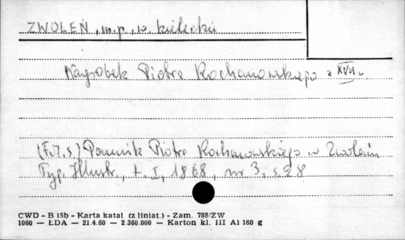 ZWOLEŃ, m.p., w. kielecki
Nagrobek Piotra Kochanowskiego z XVII w.
(F.J.S.) Pomnik Piotra Kochanowskiego w Zwoleniu
Tyg. Illustr., t. I, 1868, nr 3, s. 28
CWD - B 15b - Karta katal (z liniat.) - Zam. 788/ZW
1060 — ŁDA — 21.4.60 — 2 360.000 — Karton kl. III A1 160 g